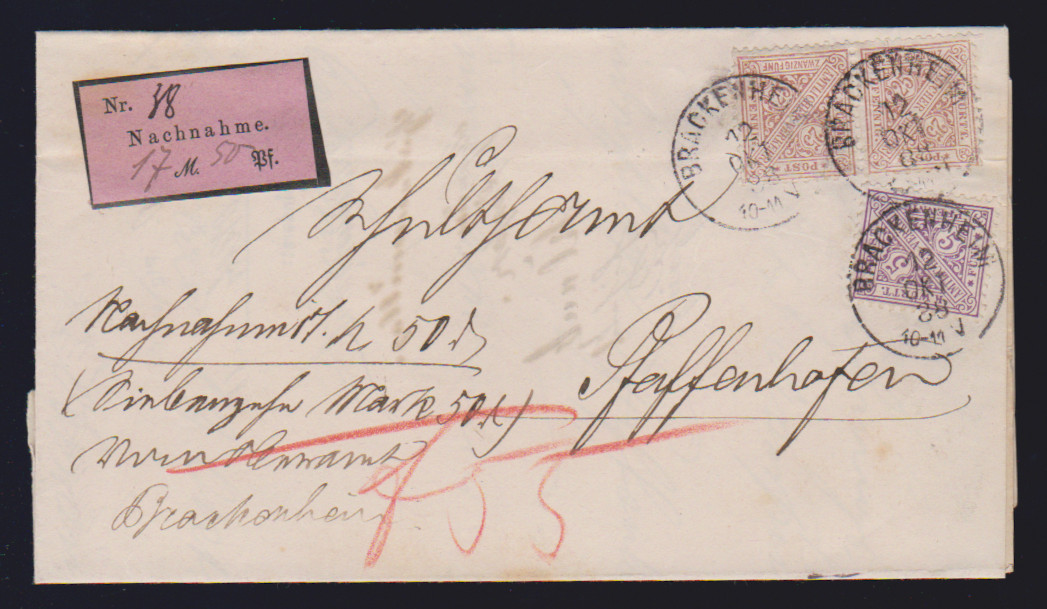 Nr. 38
Nachnahme.
17 M. 50 Pf.
ZWANZIGFÜNF
POST
BRACKENHEIM
12
OKT
88
10-11 V
BRACKENHEIM
12
OKT
88
BRACKENHEIM
12
OKT
88
10-11 V
Schultheißenamt
Nachnahme 17 M 50 d
Pfaffenhofen
(Siebenzehn Mark 50 d)
Oberamt
Brackenheim